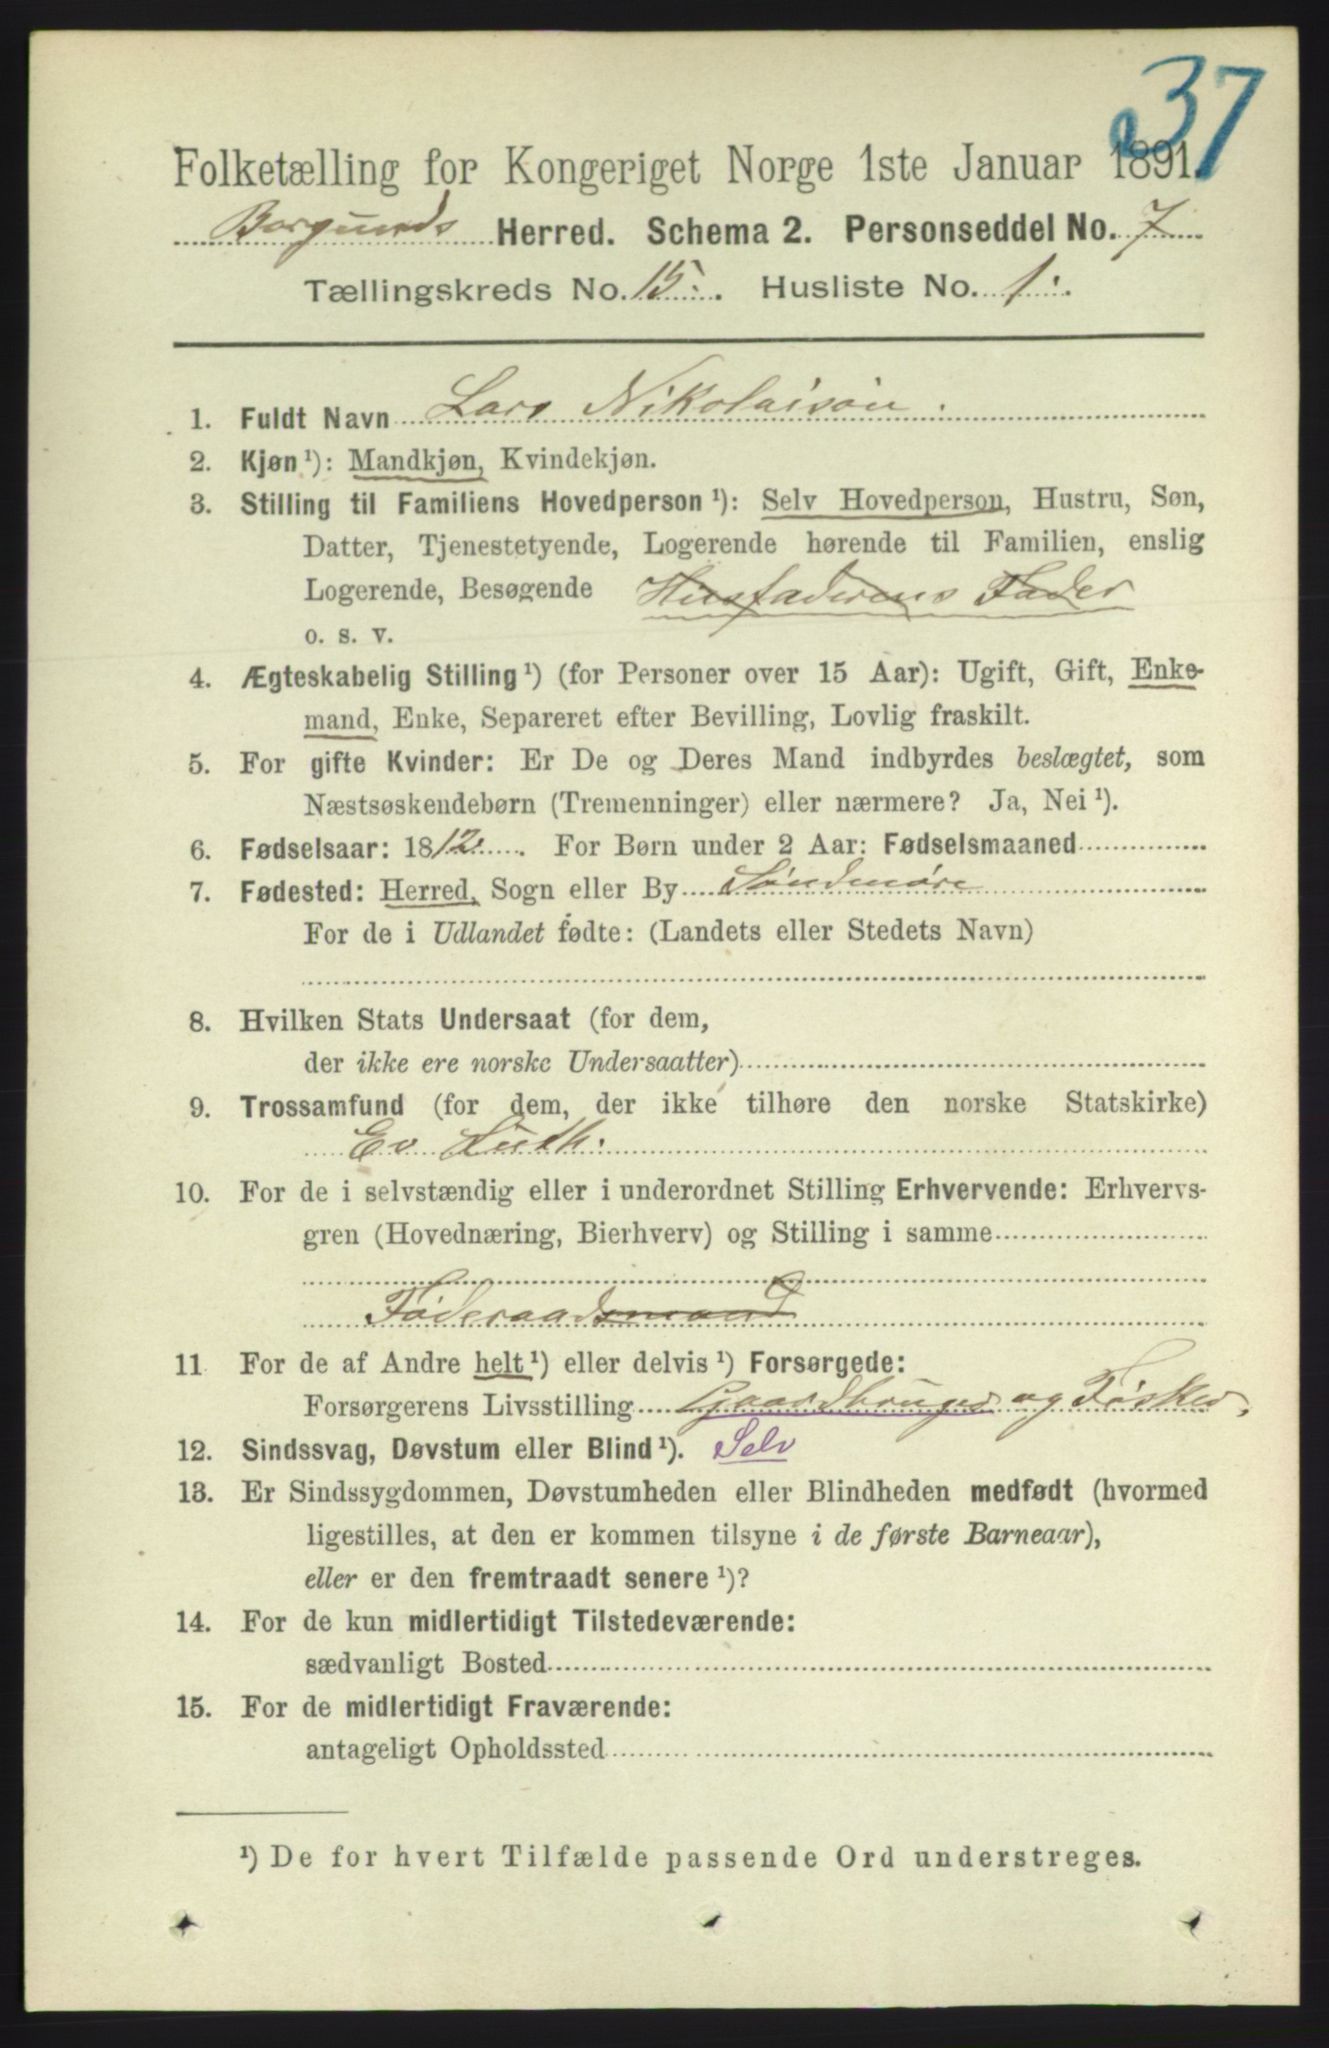 37
Folketælling for Kongeriget Norge 1ste Januar 1891.
Borgunds Herred. Schema 2. Personseddel No. 7
Tællingskreds No. 15. Husliste No. 1.
1. Fuldt Navn Lars Nikolaisøn.
2. Kjøn ¹): Mandkjøn, Kvindekjøn.
3. Stilling til Familiens Hovedperson ¹): Selv Hovedperson, Hustru, Søn,
Datter, Tjenestetyende, Logerende hørende til Familien, enslig
Logerende, Besøgende Husfaderens Fader
o. s. v.
4. Ægteskabelig Stilling ¹) (for Personer over 15 Aar): Ugift, Gift, Enke-
mand, Enke, Separeret efter Bevilling, Lovlig fraskilt.
5. For gifte Kvinder: Er De og Deres Mand indbyrdes beslægtet, som
Næstsøskendebørn (Tremenninger) eller nærmere? Ja, Nei ¹).
6. Fødselsaar: 1812. For Børn under 2 Aar: Fødselsmaaned
7. Fødested: Herred, Sogn eller By Søndmøre
For de i Udlandet fødte: (Landets eller Stedets Navn)
8. Hvilken Stats Undersaat (for dem,
der ikke ere norske Undersaatter)
9. Trossamfund (for dem, der ikke tilhøre den norske Statskirke)
Ev Luth.
10. For de i selvstændig eller i underordnet Stilling Erhvervende: Erhvervs-
gren (Hovednæring, Bierhverv) og Stilling i samme
Føderaadsmand
11 For de af Andre helt ¹) eller delvis ¹) Forsørgede:
Forsørgerens Livsstilling Gaardbruger og Fisker,
12. Sindssvag, Døvstum eller Blind ¹). Selv
13. Er Sindssygdommen, Døvstumheden eller Blindheden medfødt (hvormed
ligestilles, at den er kommen tilsyne i de første Barneaar),
eller er den fremtraadt senere ¹)?
14. For de kun midlertidigt Tilstedeværende:
sædvanligt Bosted
15. For de midlertidigt Fraværende:
antageligt Opholdssted
¹) De for hvert Tilfælde passende Ord understreges.